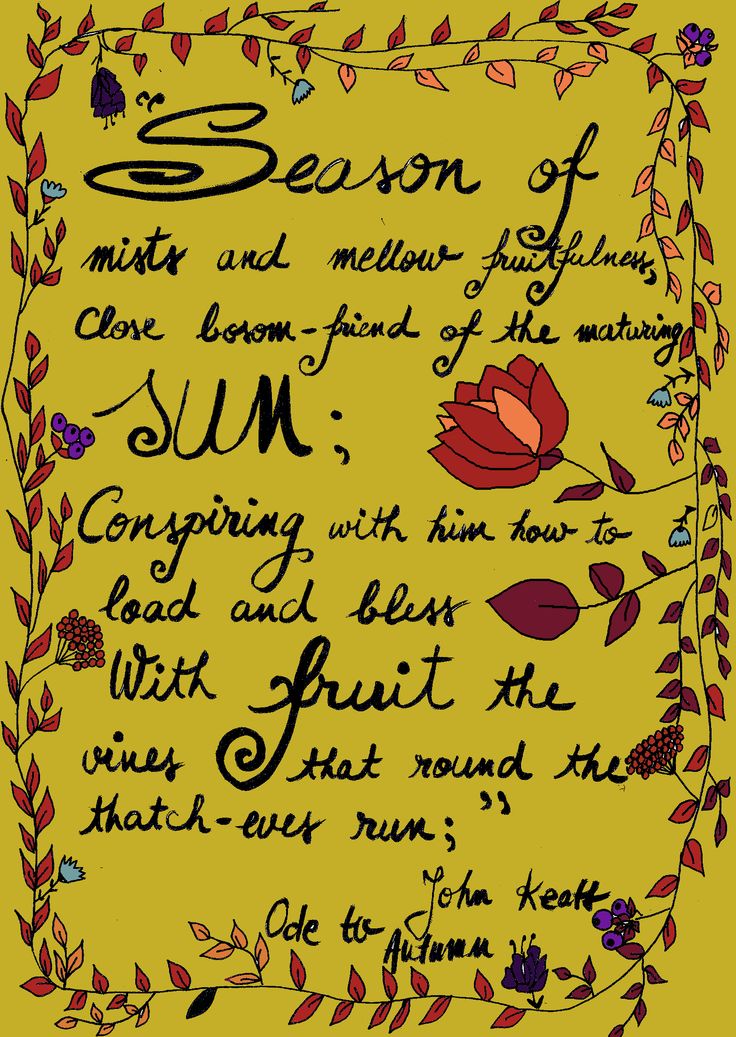 "Season of
mists and mellow fruitfulness,
Close bosom-friend of the maturing
SUN;
Conspiring with him how to
load and bless
With fruit the
vines that round the
thatch-eves run;"
John Keats
Ode to Autumn